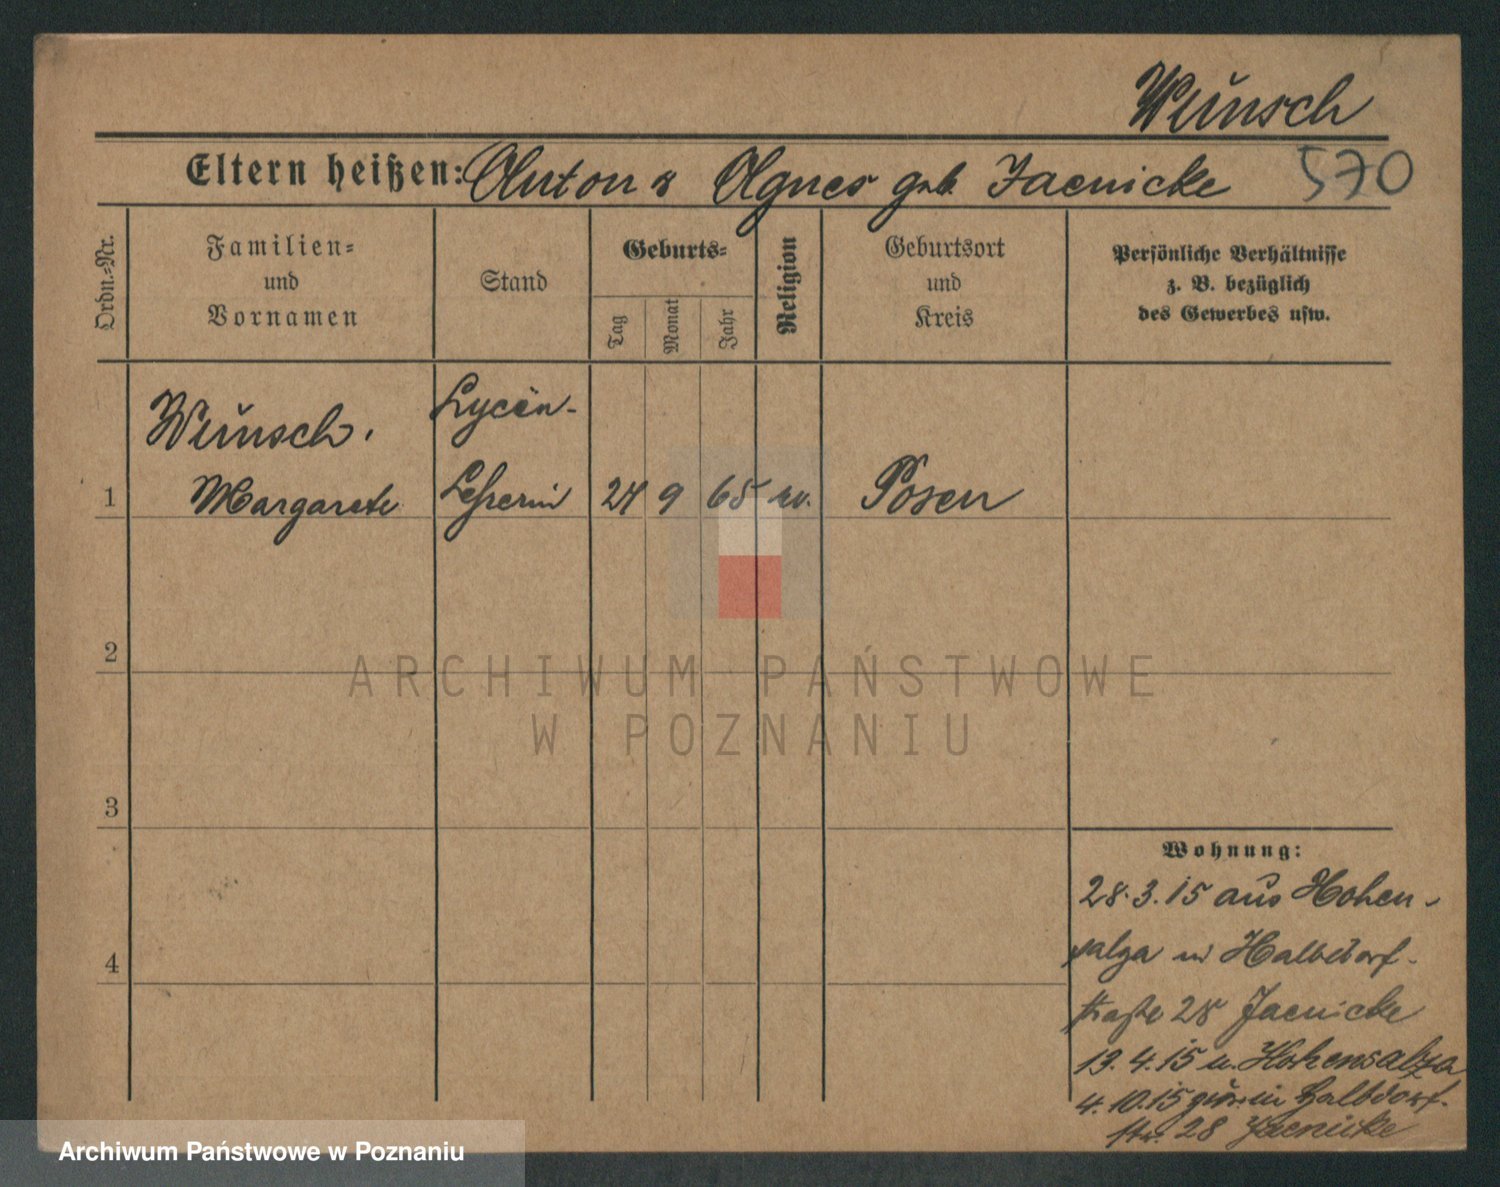 Wunsch
Eltern heißen: Anton & Agnes geb. Jaenicke 570
Ordn.=Nr.
Familien=
und
Vornamen
Stand
Geburts=
Tag
Monat
Jahr
Religion
Geburtsort
und
Kreis
Persönliche Verhältnisse
z. B. bezüglich
des Gewerbes usw.
Wunsch.
Lyceen-
1 Margarete Lehrerin 24 9 65 ev. Posen
2
3
4
Wohnung:
28.3.15 aus Hohen-
salza in Halbdorf-
straße 28 Jaenicke
19.4.15 n. Hohensalza
4.10.15 in Halbdorf-
str. 28 Jaenicke
ARCHIWUM PAŃSTWOWE
W POZNANIU
Archiwum Państwowe w Poznaniu